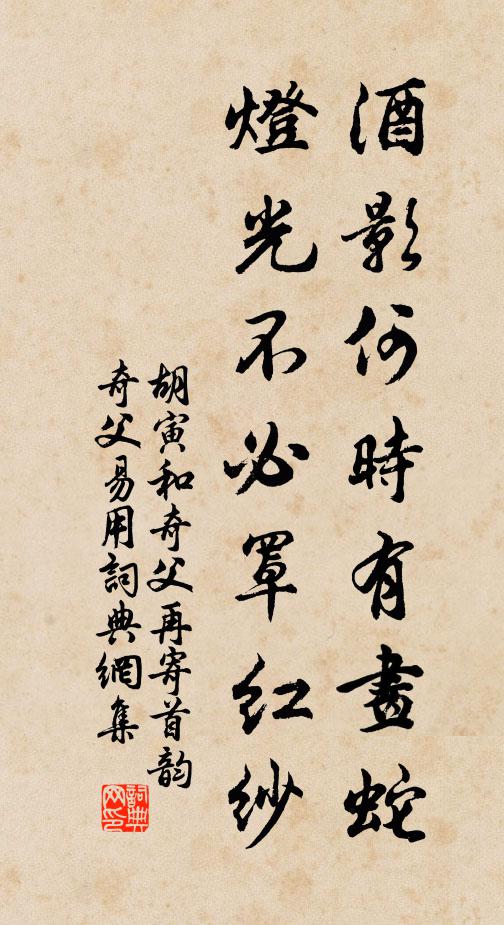 酒影何時有畫蛇
燈光不必罩紅紗
胡寅和奇父再寄首韵
奇父易用詞典網集
詞典网印